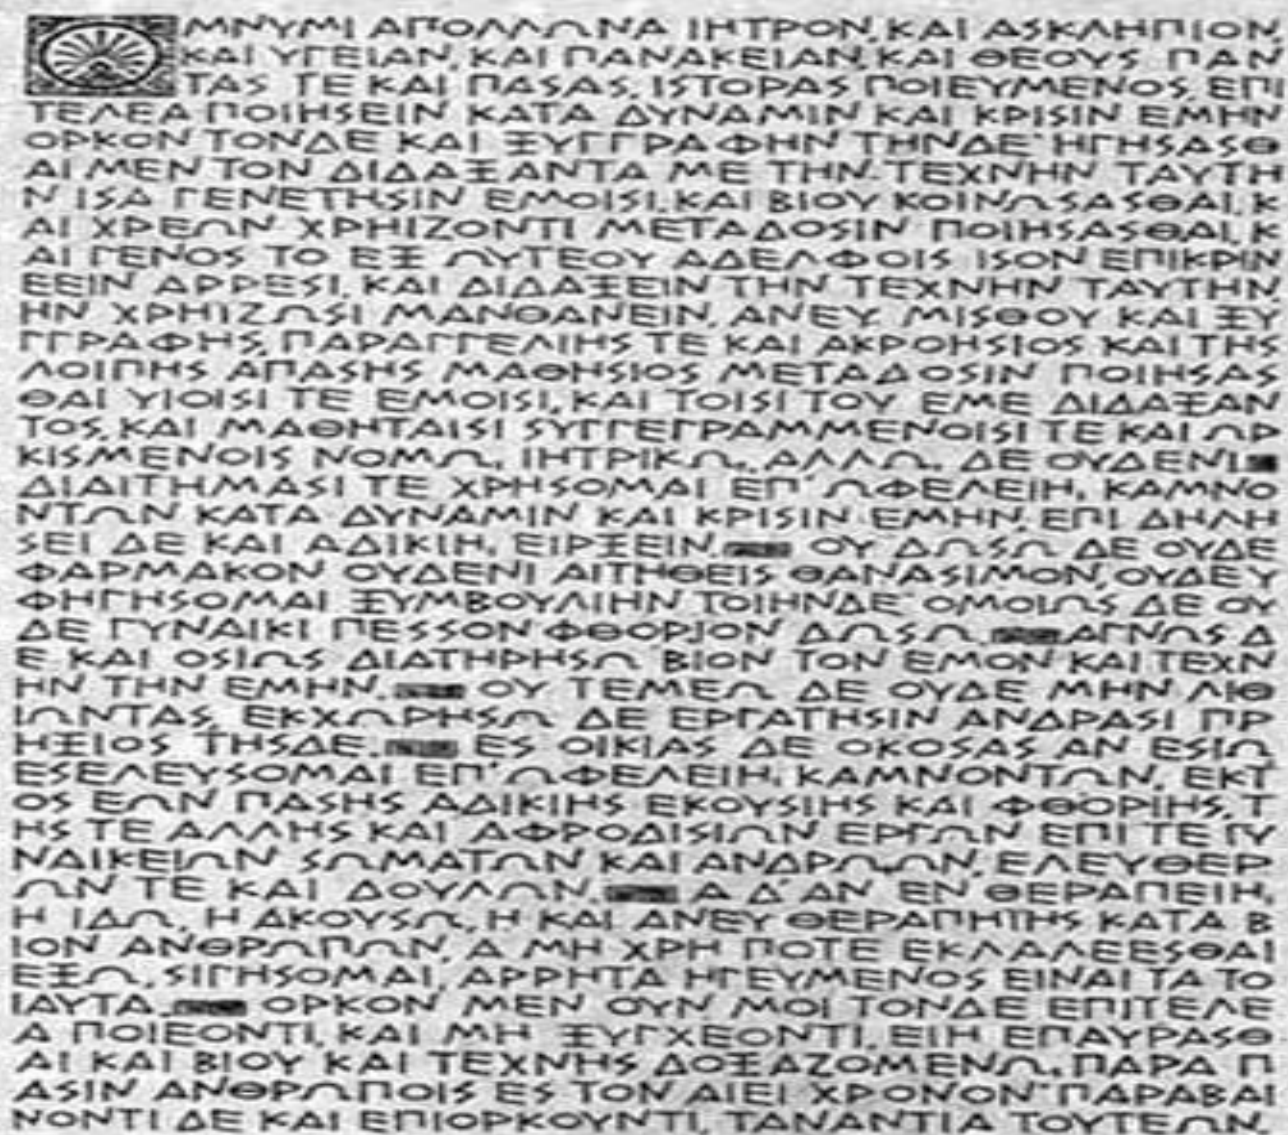 ΜΝΥΜΙ ΑΠΟΛΛΩΝΑ ΙΗΤΡΟΝ, ΚΑΙ ΑΣΚΛΗΠΙΟΝ,
ΚΑΙ ΥΓΕΙΑΝ, ΚΑΙ ΠΑΝΑΚΕΙΑΝ, ΚΑΙ ΘΕΟΥΣ ΠΑΝ
ΤΑΣ ΤΕ ΚΑΙ ΠΑΣΑΣ, ΙΣΤΟΡΑΣ ΠΟΙΕΥΜΕΝΟΣ, ΕΠΙ
ΤΕΛΕΑ ΠΟΙΗΣΕΙΝ ΚΑΤΑ ΔΥΝΑΜΙΝ ΚΑΙ ΚΡΙΣΙΝ ΕΜΗΝ
ΟΡΚΟΝ ΤΟΝΔΕ ΚΑΙ ΞΥΓΓΡΑΦΗΝ ΤΗΝΔΕ· ΗΓΗΣΑΣΘ
ΑΙ ΜΕΝ ΤΟΝ ΔΙΔΑΞΑΝΤΑ ΜΕ ΤΗΝ ΤΕΧΝΗΝ ΤΑΥΤΗ
Ν ΙΣΑ ΓΕΝΕΤΗΣΙΝ ΕΜΟΙΣΙ, ΚΑΙ ΒΙΟΥ ΚΟΙΝΩΣΑΣΘΑΙ, Κ
ΑΙ ΧΡΕΩΝ ΧΡΗΙΖΟΝΤΙ ΜΕΤΑΔΟΣΙΝ ΠΟΙΗΣΑΣΘΑΙ, Κ
ΑΙ ΓΕΝΟΣ ΤΟ ΕΞ ΩΥΤΕΟΥ ΑΔΕΛΦΟΙΣ ΙΣΟΝ ΕΠΙΚΡΙΝ
ΕΕΙΝ ΑΡΡΕΣΙ, ΚΑΙ ΔΙΔΑΞΕΙΝ ΤΗΝ ΤΕΧΝΗΝ ΤΑΥΤΗΝ,
ΗΝ ΧΡΗΙΖΩΣΙ ΜΑΝΘΑΝΕΙΝ, ΑΝΕΥ ΜΙΣΘΟΥ ΚΑΙ ΞΥ
ΓΓΡΑΦΗΣ, ΠΑΡΑΓΓΕΛΙΗΣ ΤΕ ΚΑΙ ΑΚΡΟΗΣΙΟΣ ΚΑΙ ΤΗΣ
ΛΟΙΠΗΣ ΑΠΑΣΗΣ ΜΑΘΗΣΙΟΣ ΜΕΤΑΔΟΣΙΝ ΠΟΙΗΣΑΣ
ΘΑΙ ΥΙΟΙΣΙ ΤΕ ΕΜΟΙΣΙ, ΚΑΙ ΤΟΙΣΙ ΤΟΥ ΕΜΕ ΔΙΔΑΞΑΝ
ΤΟΣ, ΚΑΙ ΜΑΘΗΤΑΙΣΙ ΣΥΓΓΕΓΡΑΜΜΕΝΟΙΣΙ ΤΕ ΚΑΙ ΩΡ
ΚΙΣΜΕΝΟΙΣ ΝΟΜΩ, ΙΗΤΡΙΚΩ, ΑΛΛΩ, ΔΕ ΟΥΔΕΝΙ.
ΔΙΑΙΤΗΜΑΣΙ ΤΕ ΧΡΗΣΟΜΑΙ ΕΠ' ΩΦΕΛΕΙΗ, ΚΑΜΝΟ
ΝΤΩΝ ΚΑΤΑ ΔΥΝΑΜΙΝ ΚΑΙ ΚΡΙΣΙΝ ΕΜΗΝ, ΕΠΙ ΔΗΛΗ
ΣΕΙ ΔΕ ΚΑΙ ΑΔΙΚΙΗ, ΕΙΡΞΕΙΝ. ΟΥ ΔΩΣΩ ΔΕ ΟΥΔΕ
ΦΑΡΜΑΚΟΝ ΟΥΔΕΝΙ ΑΙΤΗΘΕΙΣ ΘΑΝΑΣΙΜΟΝ, ΟΥΔΕ Υ
ΦΗΓΗΣΟΜΑΙ ΞΥΜΒΟΥΛΙΗΝ ΤΟΙΗΝΔΕ· ΟΜΟΙΩΣ ΔΕ ΟΥ
ΔΕ ΓΥΝΑΙΚΙ ΠΕΣΣΟΝ ΦΘΟΡΙΟΝ ΔΩΣΩ. ΑΓΝΩΣ Δ
Ε ΚΑΙ ΟΣΙΩΣ ΔΙΑΤΗΡΗΣΩ ΒΙΟΝ ΤΟΝ ΕΜΟΝ ΚΑΙ ΤΕΧΝ
ΗΝ ΤΗΝ ΕΜΗΝ. ΟΥ ΤΕΜΕΩ ΔΕ ΟΥΔΕ ΜΗΝ ΛΙΘ
ΙΩΝΤΑΣ, ΕΚΧΩΡΗΣΩ ΔΕ ΕΡΓΑΤΗΣΙΝ ΑΝΔΡΑΣΙ ΠΡ
ΗΞΙΟΣ ΤΗΣΔΕ. ΕΣ ΟΙΚΙΑΣ ΔΕ ΟΚΟΣΑΣ ΑΝ ΕΣΙΩ,
ΕΣΕΛΕΥΣΟΜΑΙ ΕΠ' ΩΦΕΛΕΙΗ, ΚΑΜΝΟΝΤΩΝ, ΕΚΤ
ΟΣ ΕΩΝ ΠΑΣΗΣ ΑΔΙΚΙΗΣ ΕΚΟΥΣΙΗΣ ΚΑΙ ΦΘΟΡΙΗΣ, Τ
ΗΣ ΤΕ ΑΛΛΗΣ ΚΑΙ ΑΦΡΟΔΙΣΙΩΝ ΕΡΓΩΝ ΕΠΙ ΤΕ ΓΥ
ΝΑΙΚΕΙΩΝ ΣΩΜΑΤΩΝ ΚΑΙ ΑΝΔΡΩΩΝ, ΕΛΕΥΘΕΡ
ΩΝ ΤΕ ΚΑΙ ΔΟΥΛΩΝ. Α Δ' ΑΝ ΕΝ ΘΕΡΑΠΕΙΗ,
Η ΙΔΩ, Η ΑΚΟΥΣΩ, Η ΚΑΙ ΑΝΕΥ ΘΕΡΑΠΗΙΗΣ ΚΑΤΑ Β
ΙΟΝ ΑΝΘΡΩΠΩΝ, Α ΜΗ ΧΡΗ ΠΟΤΕ ΕΚΛΑΛΕΕΣΘΑΙ
ΕΞΩ, ΣΙΓΗΣΟΜΑΙ, ΑΡΡΗΤΑ ΗΓΕΥΜΕΝΟΣ ΕΙΝΑΙ ΤΑ ΤΟ
ΙΑΥΤΑ. ΟΡΚΟΝ ΜΕΝ ΟΥΝ ΜΟΙ ΤΟΝΔΕ ΕΠΙΤΕΛΕ
Α ΠΟΙΕΟΝΤΙ, ΚΑΙ ΜΗ ΞΥΓΧΕΟΝΤΙ, ΕΙΗ ΕΠΑΥΡΑΣΘ
ΑΙ ΚΑΙ ΒΙΟΥ ΚΑΙ ΤΕΧΝΗΣ ΔΟΞΑΖΟΜΕΝΩ, ΠΑΡΑ Π
ΑΣΙΝ ΑΝΘΡΩΠΟΙΣ ΕΣ ΤΟΝ ΑΙΕΙ ΧΡΟΝΟΝ· ΠΑΡΑΒΑΙ
ΝΟΝΤΙ ΔΕ ΚΑΙ ΕΠΙΟΡΚΟΥΝΤΙ, ΤΑΝΑΝΤΙΑ ΤΟΥΤΕΩΝ.